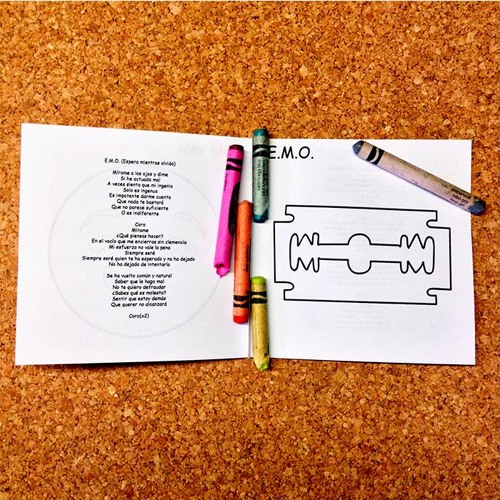 E.M.O. (Espera mientras olvido)
Mírame a los ojos y dime
Si he actuado mal
A veces siento que mi ingenio
Solo es ingenuo
Es impotente darme cuenta
Que nada te bastará
Que no parece suficiente
O es indiferente
Coro
Mírame
¿Qué piensas hacer?
En el vacío que me encierras sin clemencia
Mi esfuerzo no vale la pena
Siempre seré
Siempre seré quien te ha esperado y no ha dejado
No ha dejado de intentarlo
Se ha vuelto común y natural
Saber que le hago mal
No te quiero defraudar
¿Sabes qué es molesto?
Sentir que estoy demás
Que querer no alcanzará
Coro(x2)
E.M.O.